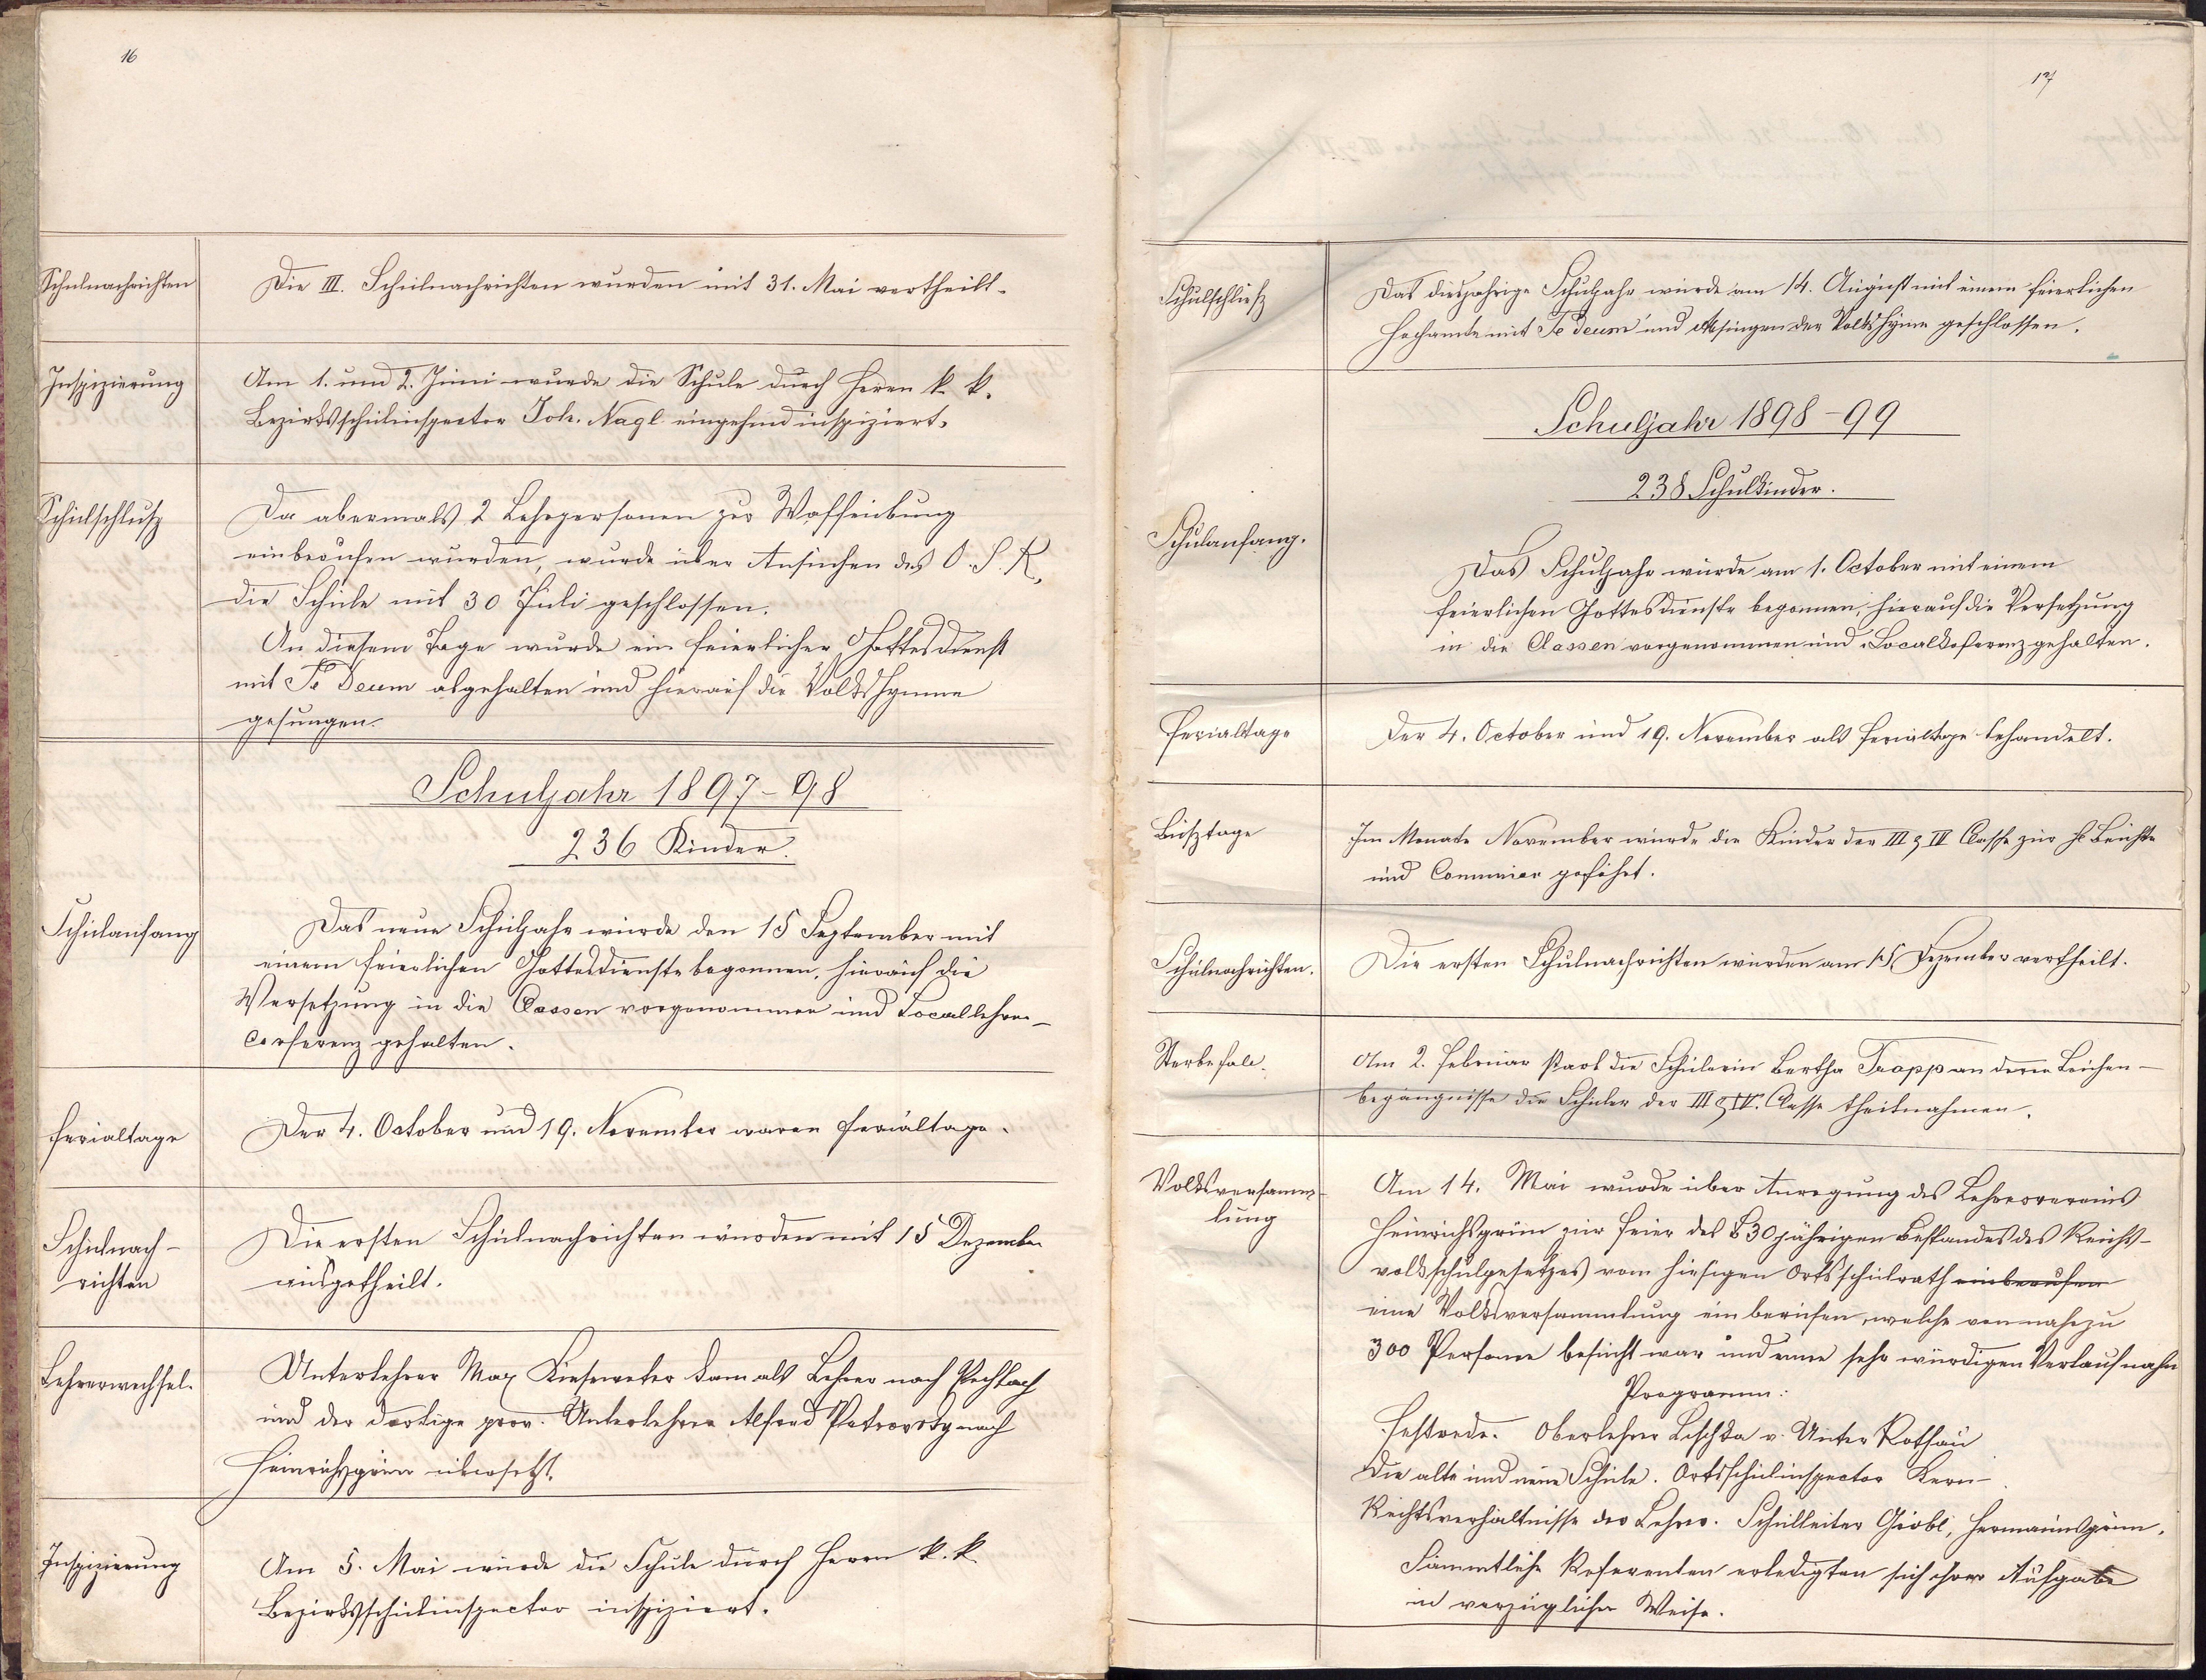 16
Schulnachrichten
Die III. Schulnachrichten wurden mit 31. Mai vertheilt.
Inspizierung
Am 1. und 2. Juni wurde die Schule durch Herrn k. k.
Bezirksschulinspector Joh. Nagl eingehend inspiziert.
Schulschluß
Da abermals 2 Lehrpersonen zur Waffenübung
einberufen wurden, wurde über Ansuchen des O. S. R.
die Schule mit 30 Juli geschlossen.
An diesem Tage wurde ein feierlicher Gottesdienst
mit Te Deum abgehalten und hierauf die Volkshymne
gesungen.
Schuljahr 1897-98
236 Kinder.
Schulanfang
Das neue Schuljahr wurde den 15 September mit
einem feierlichen Gottesdienste begonnen, hierauf die
Versetzung in die Classen vorgenommen und Locallehrer-
conferenz gehalten.
Ferialtage
Der 4. October und 19. November waren Ferialtage.
Schulnach-
richten
Die ersten Schulnachrichten wurden mit 15 Dezember
ausgetheilt.
Lehrerwechsel.
Unterlehrer Max Kieseweter kam als Lehrer nach Pechbach
und der dortige prov. Unterlehrer Alfred Petrovsky nach
Heinrichsgrün übersetzt.
Inspizierung
Am 5. Mai wurde die Schule durch Herrn k. k.
Bezirksschulinspector inspiziert.
17
Schulschluß
Das diesjährige Schuljahr wurde am 14. August mit einem feierlichen
Hochamte mit Te Deum und Absingen der Volkshymne geschlossen.
Schuljahr 1898-99
238 Schulkinder.
Schulanfang.
Das Schuljahr wurde am 1. October mit einem
feierlichen Gottesdienste begonnen, hierauf die Versetzung
in die Classen vorgenommen und Localkoferenz gehalten.
Ferialtage
Der 4. October und 19. November als Ferialtage behandelt.
Bußtage
Im Monate November wurde die Kinder der III & IV Classe zur hl Beichte
und Communion geführt.
Schulnachrichten.
Die ersten Schulnachrichten wurden am 15 Dezember vertheilt.
Sterbefall.
Am 2. Februar starb die Schülerin Bertha Trapp an deren Leichen-
begängnisse die Schüler der III & IV. Classe theilnahmen.
Volksversamm-
lung
Am 14. Mai wurde über Anregung des Lehrervereins
Heinrichsgrün zur Feier des 30jährigen Bestandes des Reichs-
volksschulgesetzes vom hiesigen Ortsschulrath einberufen
eine Volksversammlung einberufen, welche von nahezu
300 Personen besucht war und einen sehr würdigen Verlauf nahm
Programm:
Festrede. Oberlehrer Leschka v. Unter Rothau
Die alte und neue Schule. Ortsschulinspector Kern-
Rechtsverhältnisse der Lehrer. Schulleiter Gröbl, Hermannsgrün.
Sämmtliche Referenten erledigten sich ihrer Aufgabe
in vorzüglicher Weise.